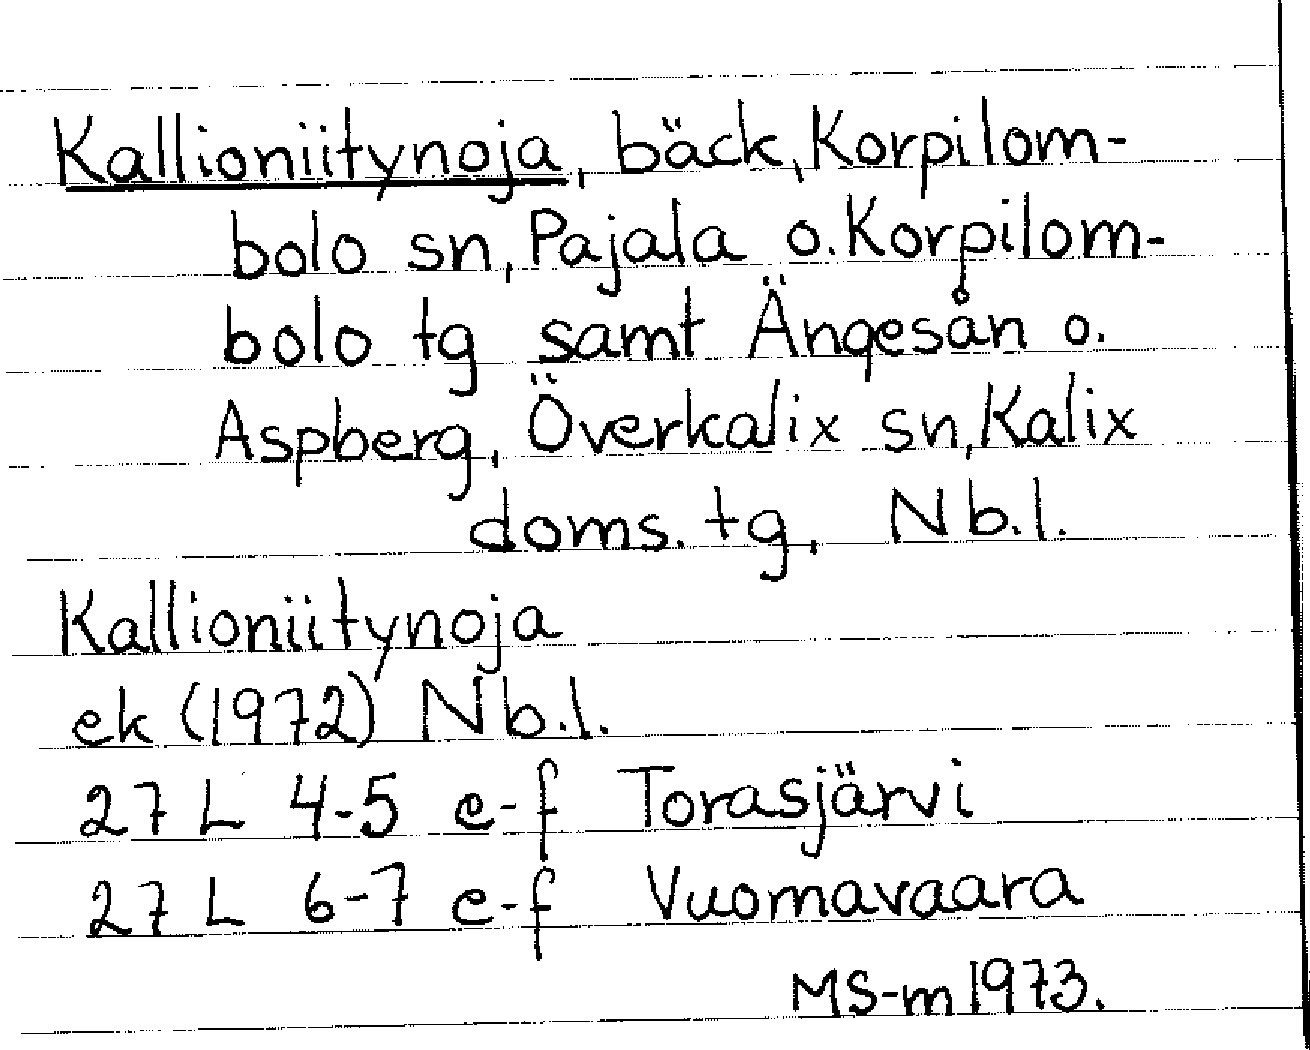 Kallioniitynoja, bäck, Korpilom-
bolo sn, Pajala o. Korpilom-
bolo tg samt Ängesån o.
Aspberg, Överkalix sn, Kalix
doms. tg, Nb.l.
Kallioniitynoja
ek (1972) Nb.l.
27 L 4-5 e-f Torasjärvi
27 L 6-7 e-f Vuomavaara
MS-m 1973.